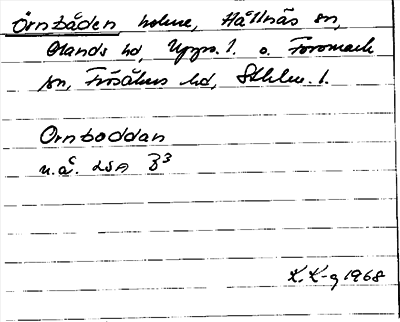 Örnbåden holme, Hållnäs sn,
Olands hd, Upps. l. o. Forsmark
sn, Frösåkers hd, Sthlms l.
Ornboddan
u.å. LSA B3
K. K-g 1968